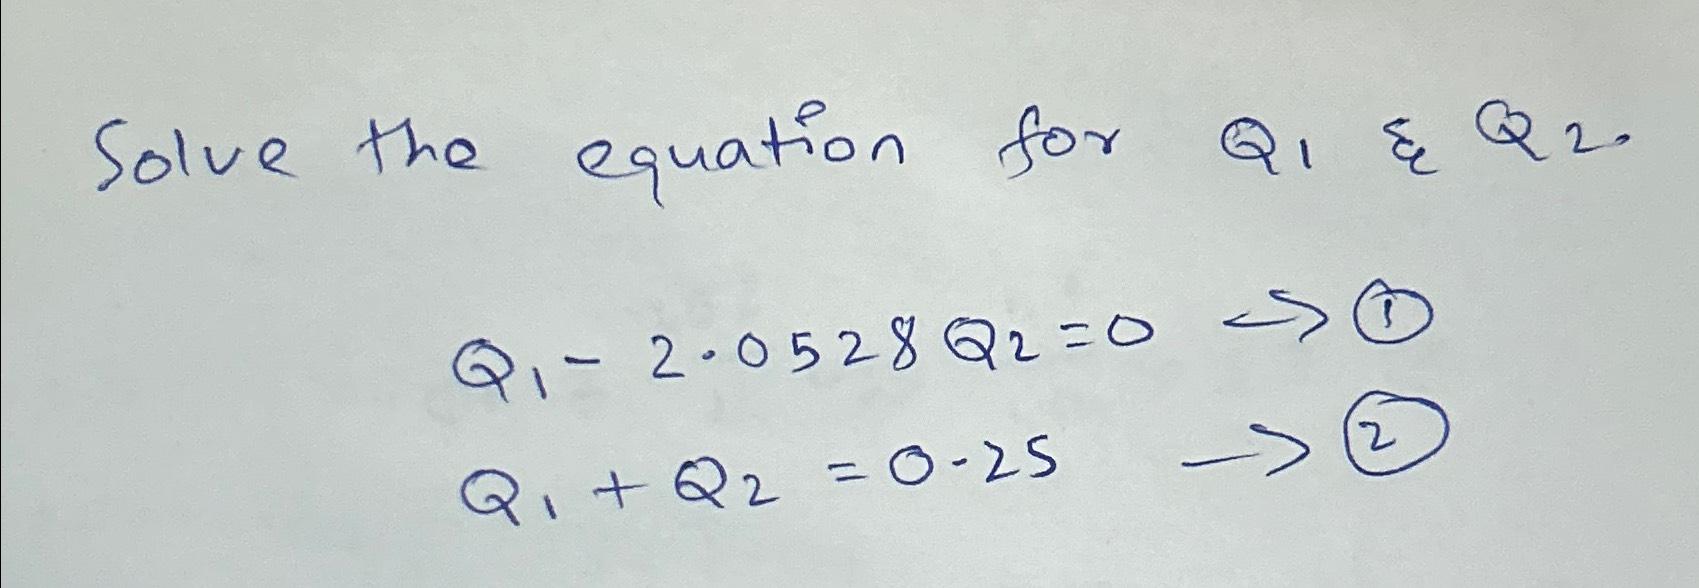 Solve the equation for Q1 & Q2.
Q1 - 2.0528 Q2 = 0 → ①
Q1 + Q2 = 0.25 → ②